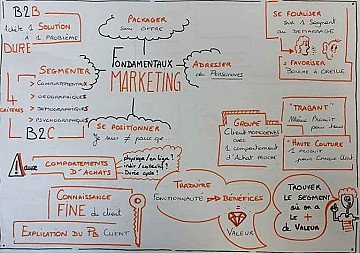 B2B
Achète 1 SOLUTION
à 1 PROBLÈME
DURE
PACKAGER
SON OFFRE
SE FOCALISER
sur 1 SEGMENT
AU DÉMARRAGE
FAVORISER
BOUCHE à OREILLE
FONDAMENTAUX
MARKETING
ADRESSER
des PERSONAES
SEGMENTER
> COMPORTEMENTAUX
> GEOGRAPHIQUES
> DÉMOGRAPHIQUES
> PSYCHOGRAPHIQUES
4
CRITÈRES
B2C
SE POSITIONNER
Je suis ≠ parce que..
GROUPE
Client HOMOGENES
avec
1 comportement
d'Achat PROCHE
"TRABANT"
Même Produit
pour tous
"HAUTE COUTURE"
1 PRODUIT
pour chaque client
COMPORTEMENTS
D'ACHATS
physique / en ligne ?
indiv / collectif ?
Durée cycle ?
CONNAISSANCE
FINE du client
EXPLICATION DU PB CLIENT
TRADUIRE
FONCTIONNALITÉ
BÉNÉFICES
=
VALEUR
TROUVER
LE SEGMENT
où on a
LE +
de VALEUR